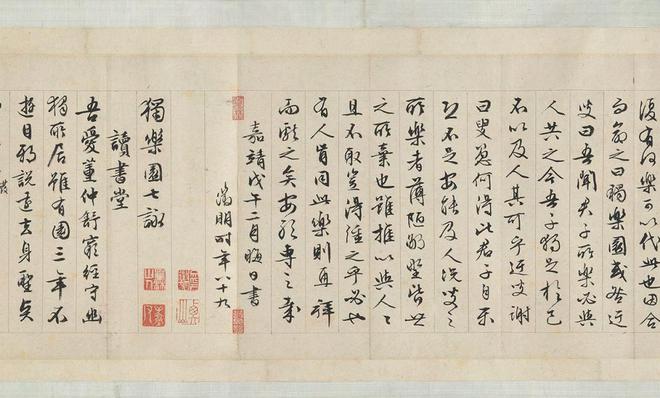 復有何樂可以代此也因合
而命之曰獨樂園或咎迂
叟曰吾聞君子所樂必與
人共之今吾子獨足於己
不以及人其可乎迂叟謝
曰叟愚何得比君子自樂
恐不足安能及人況叟之
所樂者薄陋鄙野皆世
之所棄也雖推以與人人
且不取豈得強之乎必也
有人肯同此樂則再拜
而獻之矣安敢專之哉
嘉靖戊午二月晦日書
徵明時年八十九
獨樂園七詠
讀書堂
吾愛董仲舒窮經守幽
獨所居雖有園三年不
遊目邪說遠去耳聖言